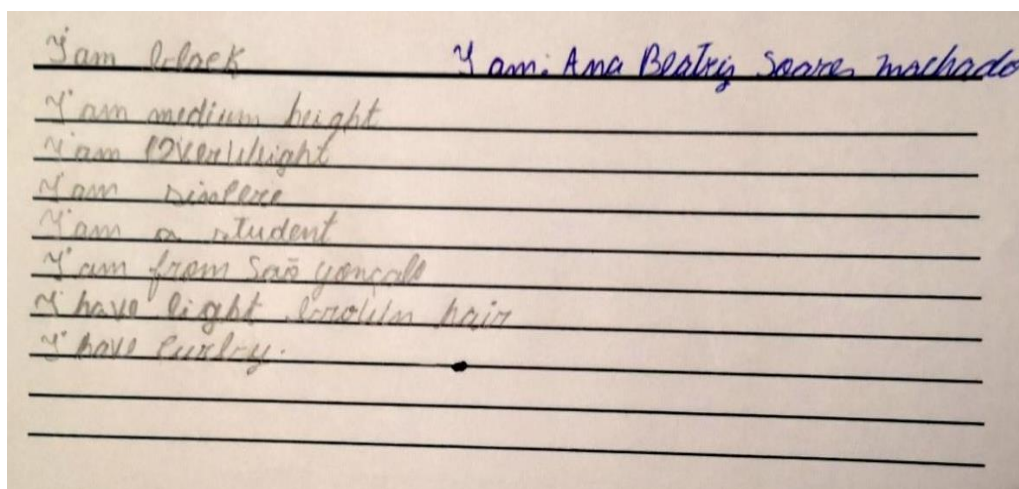 I am black I am: Ana Beatriz Soares machado
I am medium height
I am overweight
I am sincere
I am a student
I am from São gonçalo
I have light brown hair
I have curly.